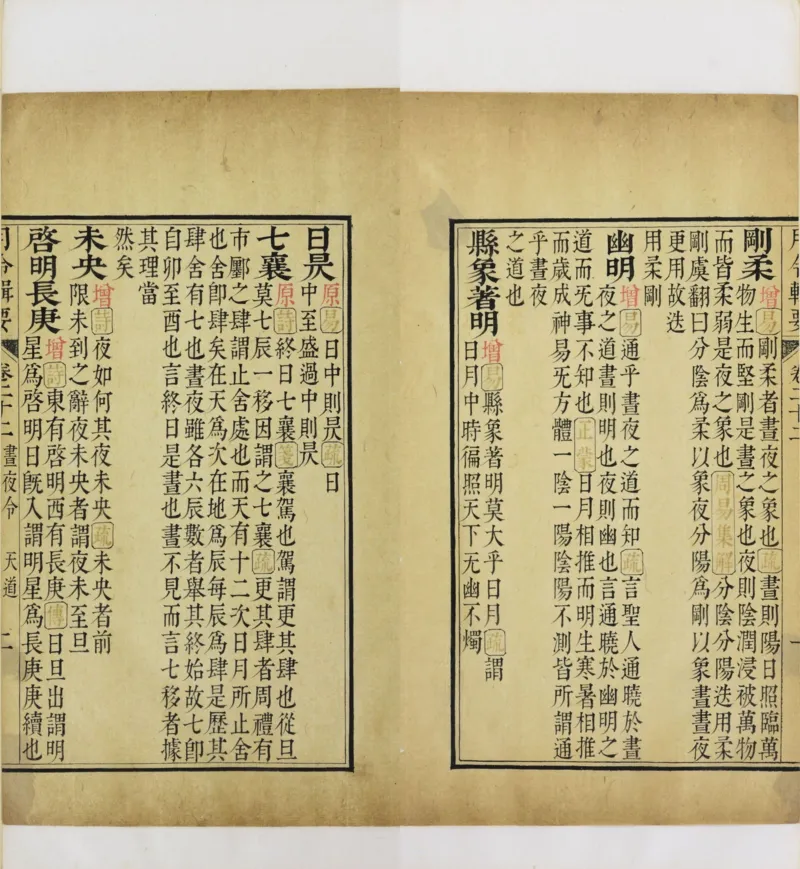 月令輯要 卷二十二 一
剛柔增易剛柔者晝夜之象也疏晝則陽日照臨萬
物生而堅剛是晝之象也夜則陰潤浸被萬物
而皆柔弱是夜之象也周易集解分陰分陽迭用柔
剛虞翻曰分陰爲柔以象夜分陽爲剛以象晝晝夜
更用故迭
用柔剛
幽明增易通乎晝夜之道而知疏言聖人通曉於晝
夜之道晝則明也夜則幽也言通曉於幽明之
道而旡事不知也正蒙日月相推而明生寒暑相推
而歲成神易旡方體一陰一陽陰陽不測皆所謂通
乎晝夜
之道也
縣象著明增易縣象著明莫大乎日月疏謂
日月中時徧照天下无幽不燭
日昃原易日中則昃疏日
中至盛過中則昃
七襄原詩終日七襄箋襄駕也駕謂更其肆也從旦
莫七辰一移因謂之七襄疏更其肆者周禮有
市鄽之肆謂止舍處也而天有十二次日月所止舍
也舍卽肆矣在天爲次在地爲辰每辰爲肆是歷其
肆舍有七也晝夜雖各六辰數者舉其終始故七卽
自卯至酉也言終日是晝也晝不見而言七移者據
其理當
然矣
未央增詩夜如何其夜未央疏未央者前
限未到之辭夜未央者謂夜未至旦
啓明長庚增詩東有啓明西有長庚傳日旦出謂明
星爲啓明日旣入謂明星爲長庚庚續也
月令輯要 卷二十二 晝夜令 天道 二